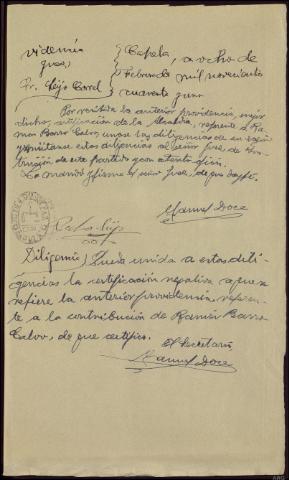 videncia
Juez,
Sr. Seijo Corral
Capela, a ocho de
Febrero de mil novecientos
cuarenta y uno
Por recibida la anterior providencia, mejor
dicho, certificación de la Alcaldía, referente a Ra-
món Barro Calvo, unase a las diligencias de su razón
y remítanse estas diligencias al Señor Juez de Ins-
trucción de este partido y con atento oficio.
Lo mandó y firma el señor Juez, de que doy fe.
Manuel Doce
Diligencia) Queda unida a estas dili-
gencias la certificación negativa a que se
refiere la anterior providencia, referen-
te a la contribución de Ramón Barro
Calvo, de que certifico.
El Secretario
Manuel Doce